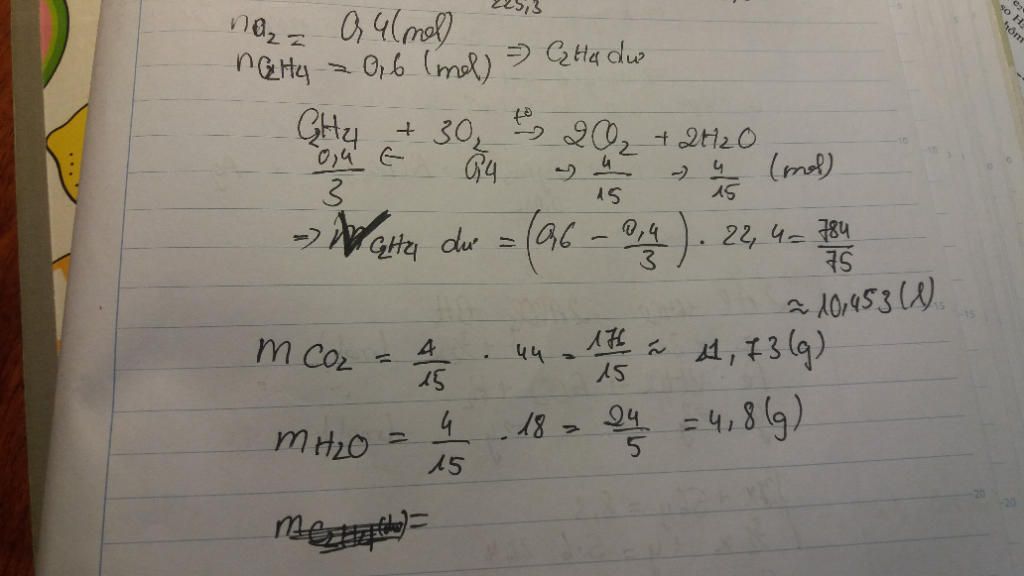 225,3
nO2 = 0,4 (mol)
nC2H4 = 0,6 (mol) => C2H4 dư
C2H4 + 3O2 t°→ 2CO2 + 2H2O
0,4/3 ← 0,4 → 4/15 → 4/15 (mol)
=> V C2H4 dư = (0,6 - 0,4/3) . 22,4 = 784/75
≈ 10,453 (l)
mCO2 = 4/15 . 44 = 176/15 ≈ 11,73 (g)
mH2O = 4/15 . 18 = 24/5 = 4,8 (g)
m =